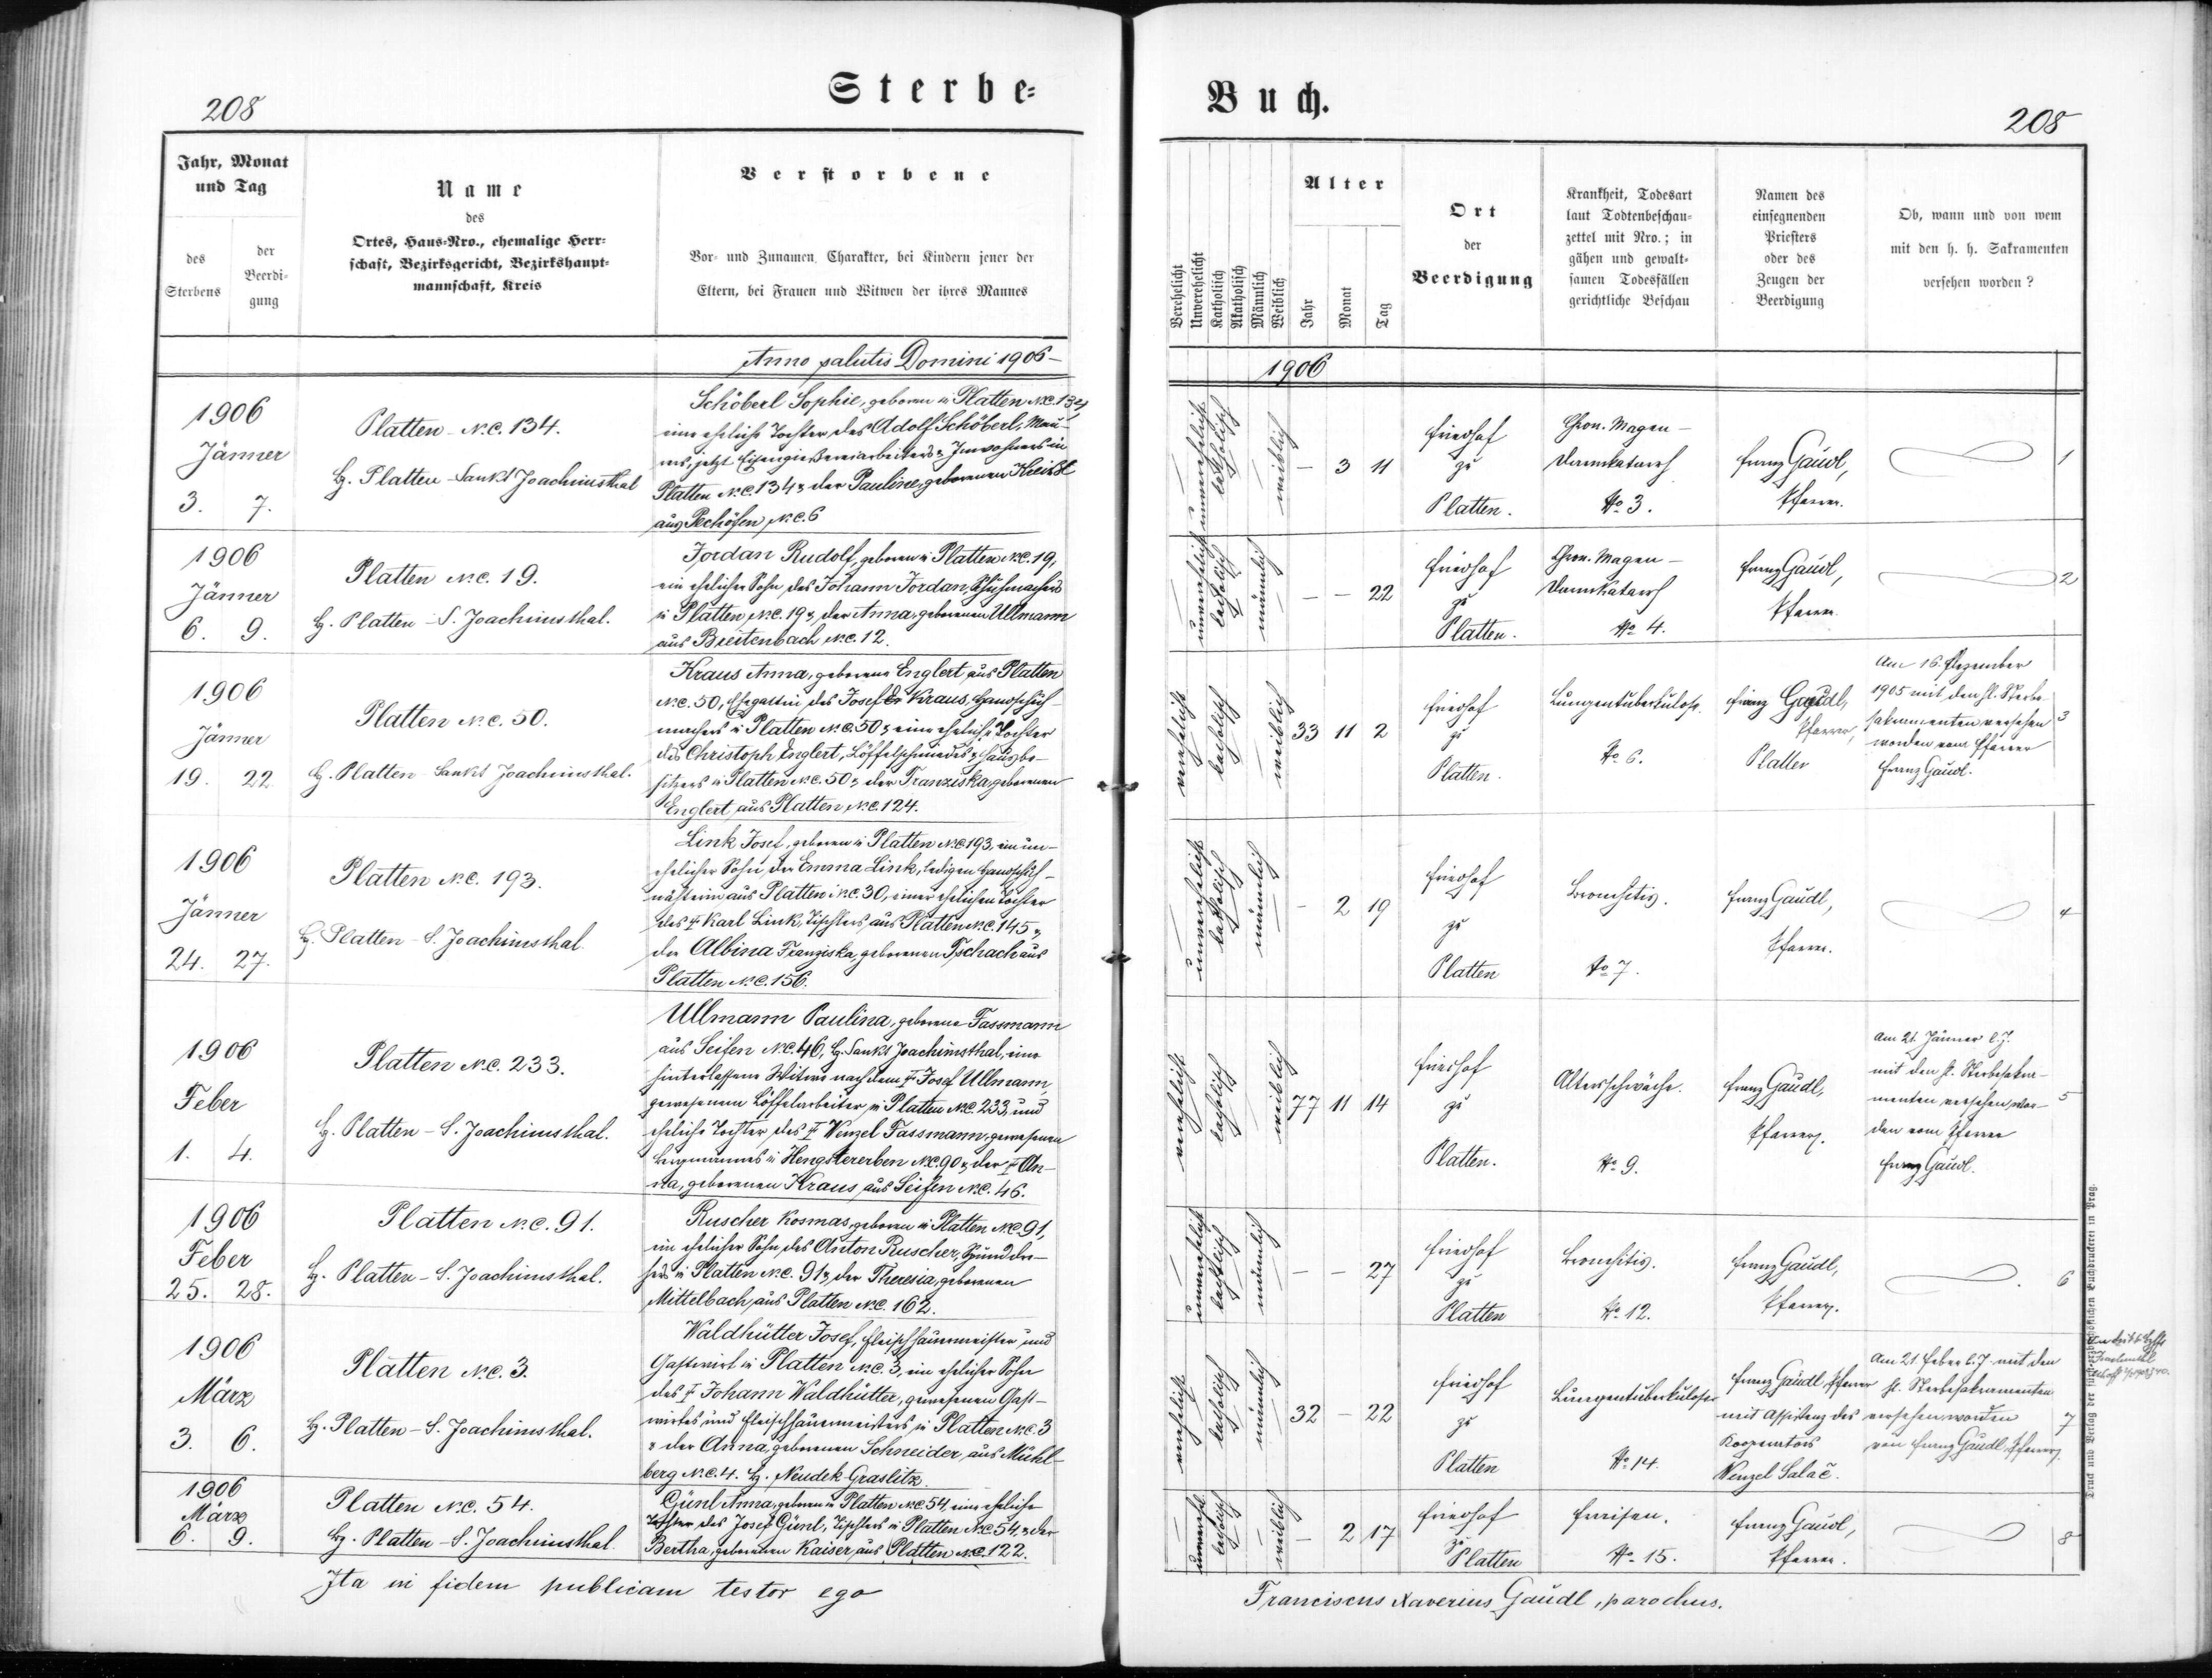 208
Sterbe=
Jahr, Monat
und Tag
des
Sterbens
der
Beerdi-
gung
Name
des
Ortes, Haus-Nro., ehemalige Herr-
schaft, Bezirksgericht, Bezirkshaupt-
mannschaft, Kreis
Verstorbene
Vor- und Zunamen, Charakter, bei Kindern jener der
Eltern, bei Frauen und Witwen der ihres Mannes
Anno salutis Domini 1906-
1906
Jänner
3. 7.
Platten N.C. 134.
Bz. Platten-Sankt Joachimsthal
Schöberl Sophie, geboren in Platten N.C. 134,
eine eheliche Tochter des Adolf Schöberl, Mau-
rers, jetzt Eisengießereiarbeiters u. Inwohners in
Platten N.C. 134 u. der Pauline, geborenen Kreißl
aus Pechöfen N.C. 6
1906
Jänner
6. 9.
Platten N.C. 19.
Bz. Platten-S. Joachimsthal.
Jordan Rudolf, geboren in Platten N.C. 19,
ein ehelicher Sohn des Johann Jordan, Schuhmachers
in Platten N.C. 19 u. der Anna, geborenen Ullmann
aus Breitenbach N.C. 12.
1906
Jänner
19. 22.
Platten N.C. 50.
Bz. Platten-Sankt Joachimsthal.
Kraus Anna, geborene Englert aus Platten
N.C. 50, Ehegattin des Josef Kraus, Handschuh-
machers in Platten N.C. 50 u. eine eheliche Tochter
des Christoph Englert, Löffelschmiedes u. Hausbe-
sitzers in Platten N.C. 50 u. der Franziska, geborenen
Englert aus Platten N.C. 124.
1906
Jänner
24. 27.
Platten N.C. 193.
Bz. Platten-S. Joachimsthal
Link Josef, geboren in Platten N.C. 193, ein un-
ehelicher Sohn der Emma Link, ledigen Handschuh-
nähterin aus Platten N.C. 30, einer ehelichen Tochter
des † Karl Link, Tischlers aus Platten N.C. 145 u.
der Albina Franziska, geborenen Tschach aus
Platten N.C. 156.
1906
Feber
1. 4.
Platten N.C. 233.
Bz. Platten-S. Joachimsthal.
Ullmann Paulina, geborene Fassmann
aus Seifen N.C. 46, Bz. Sankt Joachimsthal, eine
hinterlassene Witwe nach dem † Josef Ullmann
gewesenem Löffelarbeiter in Platten N.C. 233, und
eheliche Tochter des † Wenzel Fassmann, gewesenen
Bergmannes in Hengstererben N.C. 90 u. der † An-
na, geborenen Kraus aus Seifen N.C. 46.
1906
Feber
25. 28.
Platten N.C. 91.
Bz. Platten-S. Joachimsthal.
Ruscher Kosmas, geboren in Platten N.C. 91,
ein ehelicher Sohn des Anton Ruscher, Spunddre-
hers in Platten N.C. 91 u. der Theresia, geborenen
Mittelbach aus Platten N.C. 162.
1906
März
3. 6.
Platten N.C. 3.
Bz. Platten-S. Joachimsthal.
Waldhütter Josef, Fleischhauermeister und
Gastwirt in Platten N.C. 3, ein ehelicher Sohn
des † Johann Waldhütter, gewesenen Gast-
wirtes und Fleischhauermeisters in Platten N.C. 3
u. der Anna, geborenen Schneider aus Mühl-
berg N.C. 4. Bz. Neudek-Graslitz.
1906
März
6. 9.
Platten N.C. 54.
Bz. Platten-S. Joachimsthal
Günl Anna, geboren in Platten N.C. 54, eine eheliche
Tochter des Josef Günl, Tischlers in Platten N.C. 54, u. der
Bertha, geborenen Kaiser aus Platten N.C. 122.
Ita in fidem publicam testor ego
Buch.
208
Verehelicht
Unverehelicht
Katholisch
Akatholisch
Männlich
Weiblich
Alter
Jahr
Monat
Tag
Ort
der
Beerdigung
Krankheit, Todesart
laut Todtenbeschau-
zettel mit Nro.; in
gähen und gewalt-
samen Todesfällen
gerichtliche Beschau
Namen des
einsegnenden
Priesters
oder des
Zeugen der
Beerdigung
Ob, wann und von wem
mit den h. h. Sakramenten
versehen worden?
1906
unverehelicht
katholisch
weiblich
- 3 11
Friedhof
zu
Platten.
Chron. Magen-
Darmkatarrh
No 3.
Franz Gaudl,
Pfarrer.
1
unverehelicht
katholisch
männlich
- - 22
Friedhof
zu
Platten.
Chron. Magen-
Darmkatarrh
No 4.
Franz Gaudl,
Pfarrer.
2
verehelicht
katholisch
weiblich
33 11 2
Friedhof
zu
Platten.
Lungentuberkulose.
No 6.
Franz Gaudl,
Pfarrer,
Platten
Am 16. Dezember
1905 mit den hl. Sterbe-
sakramenten versehen
worden vom Pfarrer
Franz Gaudl.
3
unverehelicht
katholisch
männlich
- 2 19
Friedhof
zu
Platten
Bronchitis.
No 7.
Franz Gaudl,
Pfarrer.
4
verehelicht
katholisch
weiblich
77 11 14
Friedhof
zu
Platten.
Altersschwäche.
No 9.
Franz Gaudl,
Pfarrer.
Am 21. Jänner l. J.
mit den hl. Sterbesakra-
menten versehen wor-
den vom Pfarrer
Franz Gaudl.
5
unverehelicht
katholisch
männlich
- - 27
Friedhof
zu
Platten
Bronchitis.
No 12.
Franz Gaudl,
Pfarrer.
6
verehelicht
katholisch
männlich
32 - 22
Friedhof
zu
Platten
Lungentuberkulose
No 14.
Franz Gaudl, Pfarrer
mit Assistenz des
Kooperators
Wenzel Salač.
Am 21. Feber l. J. mit den
hl. Sterbesakramenten
versehen worden
von Franz Gaudl, Pfarrer.
7
unverehel.
katholisch
weiblich
- 2 17
Friedhof
zu
Platten
Fraisen.
No 15.
Franz Gaudl,
Pfarrer.
8
Franciscus Xaverius Gaudl, parochus.
Druck und Verlag der fürst-erzbischöflichen Buchdruckerei in Prag.